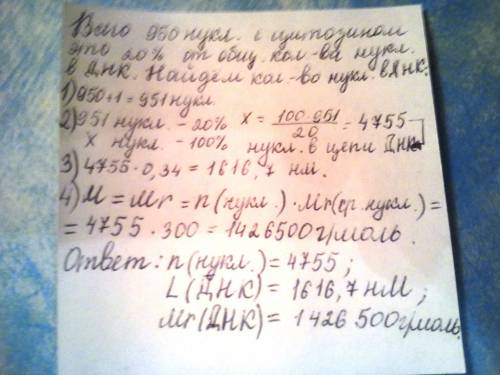 Всего 950 нукл. с цитозином
это 20% от общ. кол-ва нукл.
в ДНК. Найдём кол-во нукл. в ДНК:
1) 950+1 = 951 нукл.
2) 951 нукл. - 20% X = 100·951 / 20 = 4755
X нукл. - 100% нукл. в цепи ДНК
3) 4755·0,34 = 1616,7 нм.
4) M = Mr = n(нукл.)·Mr(ср.нукл.) =
= 4755·300 = 1426500 г/моль.
Ответ: n(нукл.) = 4755;
L(ДНК) = 1616,7 нМ;
Mr(ДНК) = 1426500 г/моль.